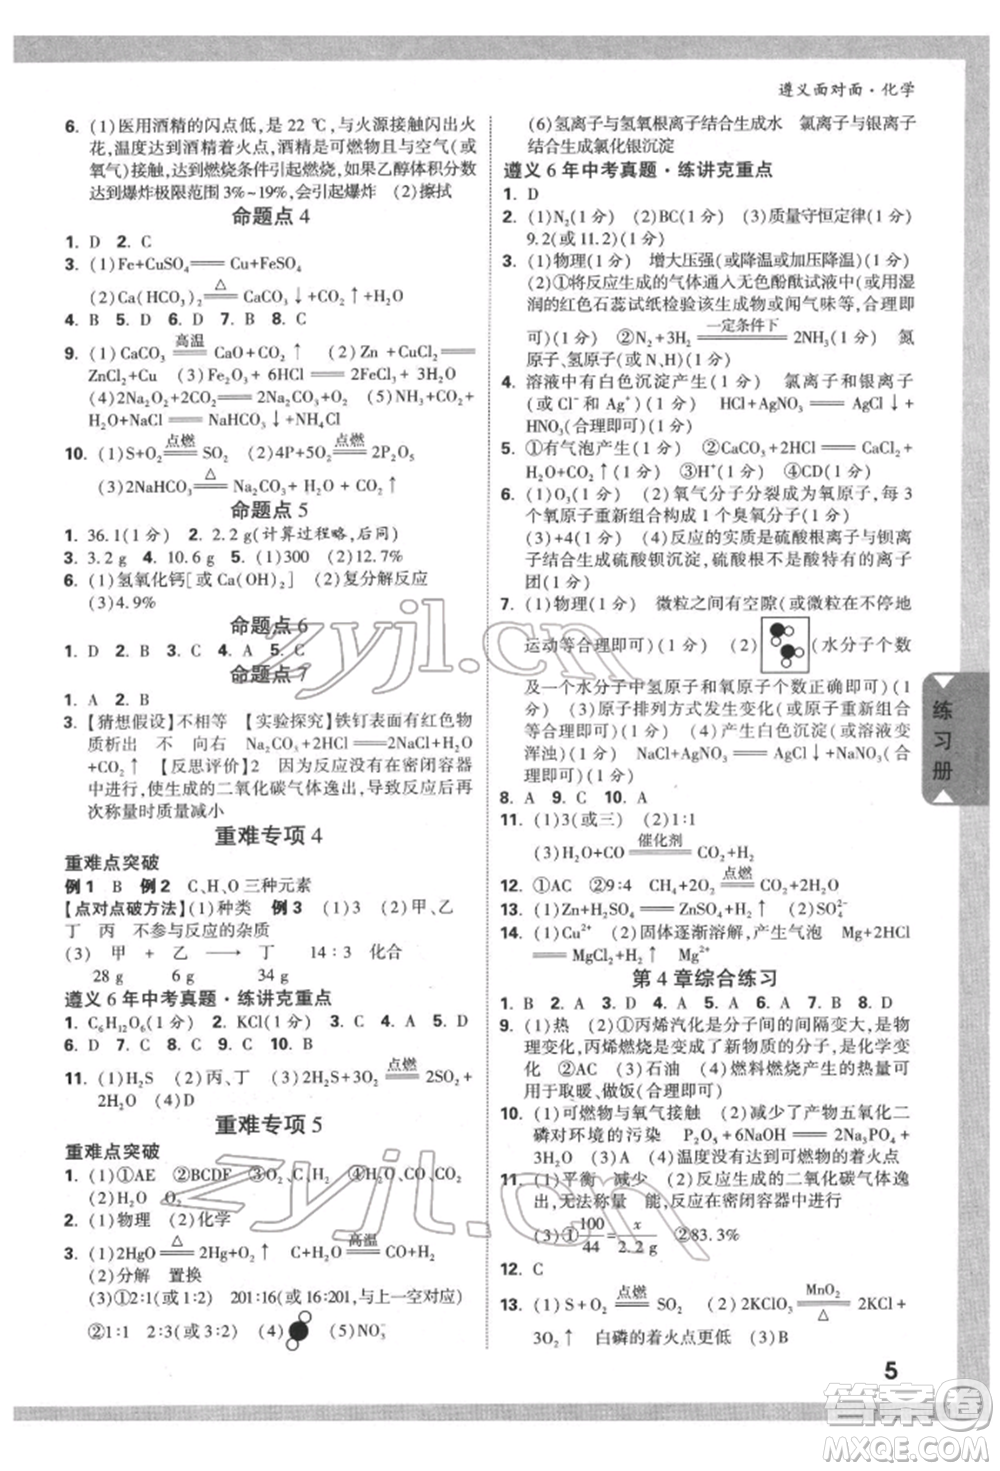 遵义面对面·化学
6. (1)医用酒精的闪点低,是 22 ℃,与火源接触闪出火
花,温度达到酒精着火点,酒精是可燃物且与空气(或
氧气)接触,达到燃烧条件引起燃烧,如果乙醇体积分数
达到爆炸极限范围 3%~19%,会引起爆炸 (2)擦拭
命题点 4
1. D 2. C
3. (1)Fe+CuSO₄══Cu+FeSO₄
(2)Ca(HCO₃)₂ ══△══ CaCO₃↓+CO₂↑+H₂O
4. B 5. D 6. D 7. B 8. C
9. (1) CaCO₃ ══高温══ CaO + CO₂↑ (2) Zn + CuCl₂══
ZnCl₂+Cu (3)Fe₂O₃+6HCl══2FeCl₃+3H₂O
(4)2Na₂O₂+2CO₂══2Na₂CO₃+O₂ (5)NH₃+CO₂+
H₂O+NaCl══NaHCO₃↓+NH₄Cl
10. (1)S+O₂ ══点燃══ SO₂ (2)4P+5O₂ ══点燃══ 2P₂O₅
(3)2NaHCO₃ ══△══ Na₂CO₃+H₂O+CO₂↑
命题点 5
1. 36.1(1分) 2. 2.2 g(计算过程略,后同)
3. 3.2 g 4. 10.6 g 5. (1)300 (2)12.7%
6. (1)氢氧化钙[或 Ca(OH)₂] (2)复分解反应
(3)4.9%
命题点 6
1. D 2. B 3. C 4. A 5. C
命题点 7
1. A 2. B
3. 【猜想假设】不相等 【实验探究】铁钉表面有红色物
质析出 不 向右 Na₂CO₃+2HCl══2NaCl+H₂O+
CO₂↑ 【反思评价】2 因为反应没有在密闭容器
中进行,使生成的二氧化碳气体逸出,导致反应后再
次称量时质量减小
重难专项 4
重难点突破
例 1 B 例 2 C、H、O 三种元素
【点对点破方法】(1)种类 例 3 (1)3 (2)甲、乙
丁 丙 不参与反应的杂质
(3) 甲 + 乙 ⟶ 丁 14:3 化合
28 g 6 g 34 g
遵义 6 年中考真题·练讲克重点
1. C₆H₁₂O₆(1分) 2. KCl(1分) 3. C 4. A 5. D
6. D 7. D 8. C 9. D 10. B
11. (1)H₂S (2)丙、丁 (3)2H₂S+3O₂ ══点燃══ 2SO₂+
2H₂O (4)D
重难专项 5
重难点突破
1. (1)①AE ②BCDF ③BD (2)H₂O、CO、CO₂
(3)H₂O₂ O₂
2. (1)物理 (2)化学
3. (1)2HgO ══△══ 2Hg+O₂↑ C+H₂O ══高温══ CO+H₂
(2)分解 置换
(3)①2:1(或 1:2) 201:16(或 16:201,与上一空对应)
②1:1 2:3(或 3:2) (4) (5)NO₃⁻
(6)氢离子与氢氧根离子结合生成水 氯离子与银离子
结合生成氯化银沉淀
遵义 6 年中考真题·练讲克重点
1. D
2. (1)N₂(1分) (2)BC(1分) (3)质量守恒定律(1分)
9.2(或 11.2)(1分)
3. (1)物理(1分) 增大压强(或降温或加压降温)(1分)
(2)①将反应生成的气体通入无色酚酞试液中(或用湿
润的红色石蕊试纸检验该生成物或闻气味等,合理即
可)(1分) ②N₂+3H₂ ══一定条件下══ 2NH₃(1分) 氮
原子、氢原子(或 N、H)(1分)
4. 溶液中有白色沉淀产生(1分) 氯离子和银离子
(或 Cl⁻和 Ag⁺)(1分) HCl+AgNO₃══AgCl↓+
HNO₃(合理即可)(1分)
5. ①有气泡产生(1分) ②CaCO₃+2HCl══CaCl₂+
H₂O+CO₂↑(1分) ③H⁺(1分) ④CD(1分)
6. (1)O₃(1分) (2)氧气分子分裂成为氧原子,每 3
个氧原子重新组合成 1 个臭氧分子(1分)
(3)+4(1分) (4)反应的实质是硫酸根离子与钡离
子结合生成硫酸钡沉淀,硫酸根不是酸特有的离子
团(1分)
7. (1)物理(1分) 微粒之间有空隙(或微粒在不停地
运动等合理即可)(1分) (2) (水分子个数
及一个水分子中氢原子和氧原子个数正确即可)(1分)
(3)原子排列方式发生变化(或原子重新组合
等合理即可)(1分) (4)产生白色沉淀(或溶液变
浑浊)(1分) NaCl+AgNO₃══AgCl↓+NaNO₃(合
理即可)(1分)
8. A 9. C 10. A
11. (1)3(或三) (2)1:1
(3)H₂O+CO ══催化剂══ CO₂+H₂
12. ①AC ②9:4 CH₄+2O₂ ══点燃══ CO₂+2H₂O
13. (1)Zn+H₂SO₄══ZnSO₄+H₂↑ (2)SO₄²⁻
14. (1)Cu²⁺ (2)固体逐渐溶解,产生气泡 Mg+2HCl
══MgCl₂+H₂↑ Mg²⁺
第 4 章综合练习
1. B 2. A 3. D 4. C 5. D 6. A 7. B 8. D
9. (1)热 (2)①丙烯汽化是分子间的间隔变大,是物
理变化,丙烯燃烧是变成了新物质的分子,是化学变
化 ②AC (3)石油 (4)燃料燃烧产生的热量可用
于取暖、做饭(合理即可)
10. (1)可燃物与氧气接触 (2)减少了产物五氧化二
磷对环境的污染 P₂O₅+3H₂O══2H₃PO₄
(3)C (4)温度没有达到红磷的着火点
11. (1)平衡 减少 (2)反应生成的二氧化碳气体逸
出,无法称量 能,反应在密闭容器中进行
(3)①100/44=x/2.2 g ②83.3%
12. C
13. (1)S+O₂ ══点燃══ SO₂ (2)2KClO₃ ══MnO₂/△══ 2KCl+
3O₂↑ 白磷的着火点更低 (3)B
练习册
5
zyjl.cn
zyjl.cn
答案圈
MXQE.COM